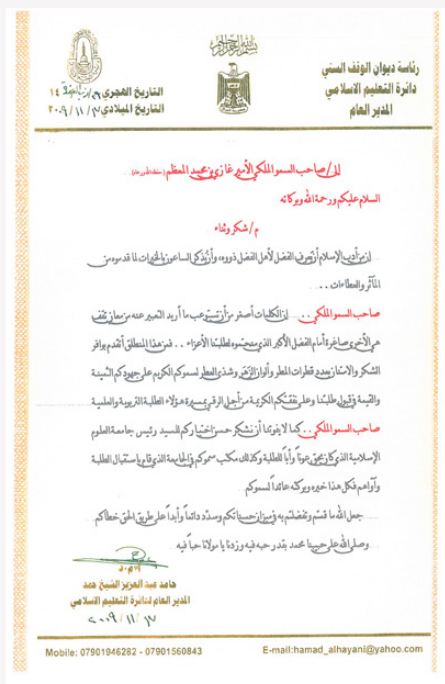 رئاسة ديوان الوقف السني
دائرة التعليم الاسلامي
المدير العام
بسم الله الرحمن الرحيم
التاريخ الهجري
التاريخ الميلادي ١٧ / ١١ / ٢٠٠٩
الى/ صاحب السمو الملكي الأمير غازي بن محمد المعظم
السلام عليكم ورحمة الله وبركاته
م/ شكر وثناء
إن من أدب الإسلام أن يعرف الفضل لأهل الفضل ذووه، وأن يذكر الساعون بالخيرات لما قدموه من
المآثر والعطاءات ...
صاحب السمو الملكي .... إن الكلمات أصغر من أن تستوعب ما أريد التعبير عنه من معانٍ تقف
هي الأخرى صاغرة أمام الفضل الأكبر الذي منحتموه لطلبتنا الأعزاء .. فمن هذا المنطلق أتقدم بوافر
الشكر والامتنان بعدد قطرات المطر وألوان الزهر وشذى العطر لسموكم الكريم على جهودكم الثمينة
والقيمة في قبول طلبتنا وعلى نفقتكم الكريمة من أجل الرقي بمسيرة هؤلاء الطلبة التربوية والعلمية
صاحب السمو الملكي .. كما لا يفوتنا أن نشكر حسن اختياركم للسيد رئيس جامعة العلوم
الإسلامية الذي كان بحق عوناً وأباً للطلبة وكذلك مكتب سموكم في الجامعة الذي قام باستقبال الطلبة
وآواهم فكل هذا خيره وبركته عائداً لسموكم
جعل الله ما قمتم وتفضلتم به في ميزان حسناتكم وسدد دائماً وأبداً على طريق الحق خطاكم
وصلى الله على حبيبنا محمد بقدر حبه فيه وزدنا يا مولانا حباً فيه
حامد عبد العزيز الشيخ حمد
المدير العام لدائرة التعليم الاسلامي
١٧ / ١١ / ٢٠٠٩
Mobile: 07901946282 - 07901560843 E-mail:hamad_alhayani@yahoo.com